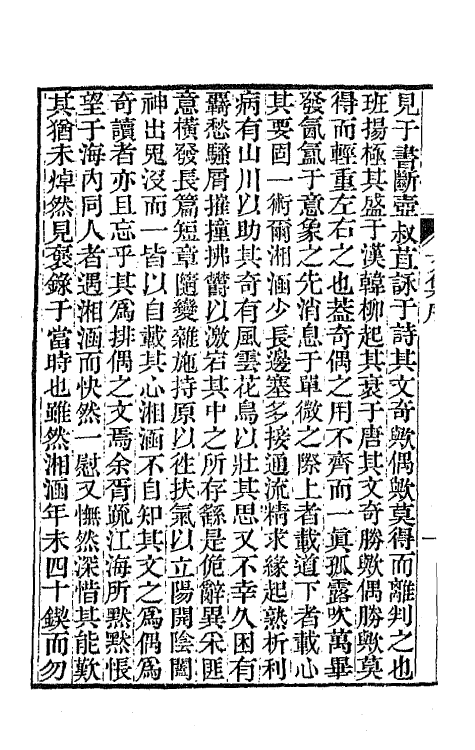 見于書斷壺叔苴詠于詩其文奇歟偶歟莫得而離判之也
班揚極其盛于漢韓柳起其衰于唐其文奇勝歟偶勝歟莫
得而輕重左右之也葢奇偶之用不齊而一眞孤露吹萬畢
發氤氳于意象之先消息于單微之際上者載道下者載心
其要固一術爾湘涵少長邊塞多接通流精求緣起熟析利
病有山川以助其奇有風雲花鳥以壯其思又不幸久困有
羈愁騷屑摧撞拂鬱以激宕其中之所存繇是佹辭異采匪
意橫發長篇短章隨變雜施持原以徃扶氣以立陽開陰闔
神出鬼沒而一皆以自載其心湘涵不自知其文之爲偶爲
奇讀者亦且忘乎其爲排偶之文焉余胥疏江海所黙黙悵
望于海內同人者遇湘涵而快然一慰又憮然深惜其能歎
其猶未焯然見褒錄于當時也雖然湘涵年未四十鍥而勿